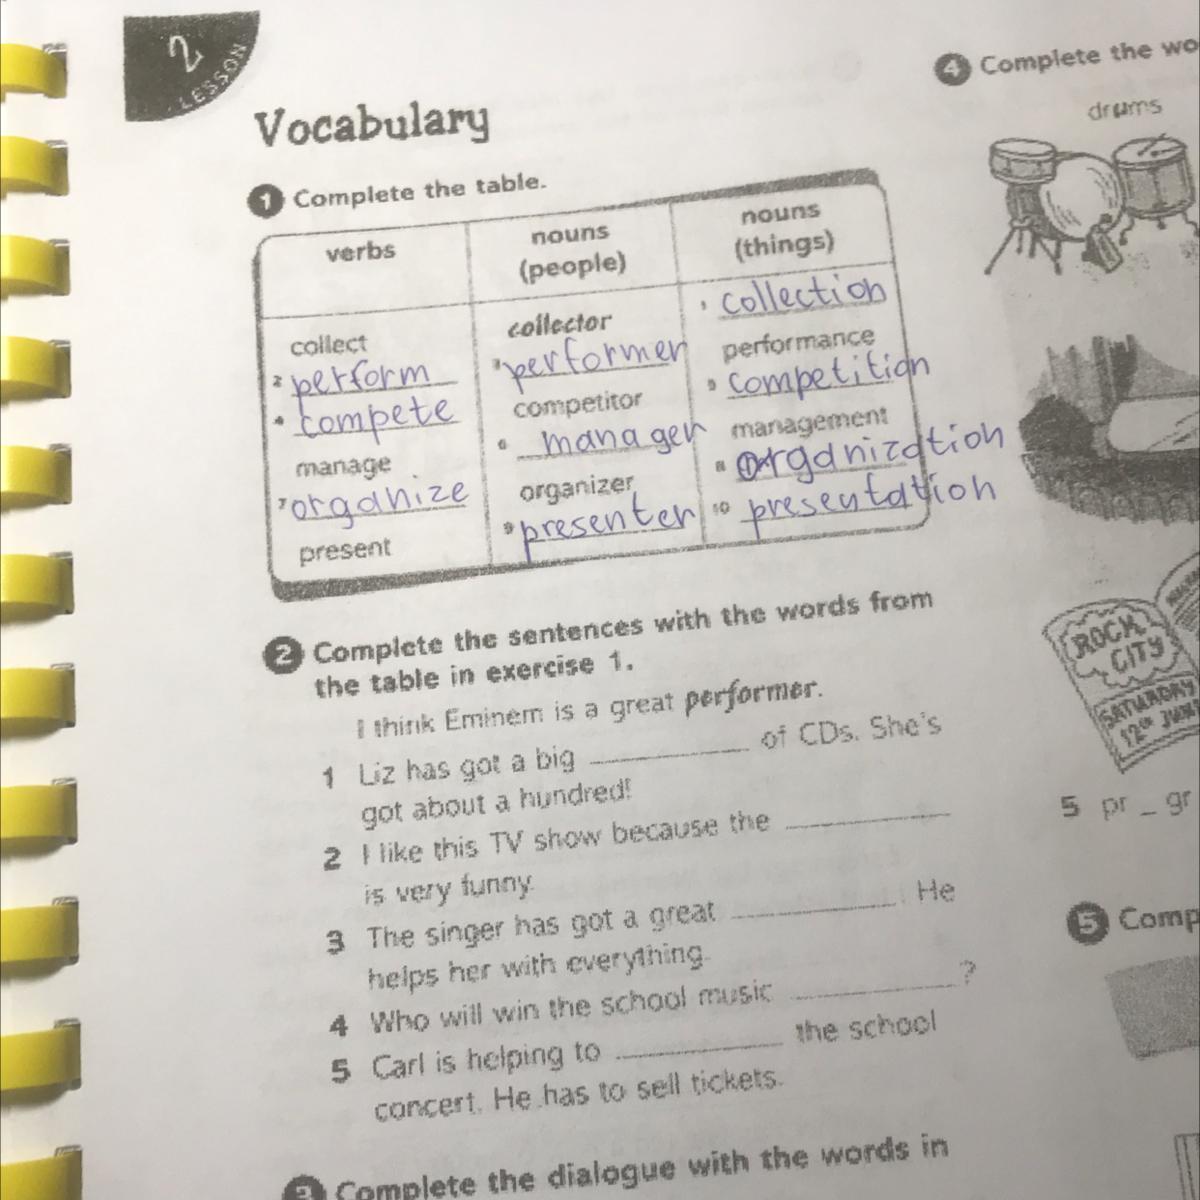 2
LESSON
Vocabulary
1 Complete the table.
verbs
nouns
(people)
nouns
(things)
collect
collector
1 collection
2 perform
3 performer
performance
4 compete
competitor
5 competition
manage
6 manager
management
7 organize
organizer
8 organization
present
9 presenter
10 presentation
2 Complete the sentences with the words from
the table in exercise 1.
I think Eminem is a great performer.
1 Liz has got a big ________ of CDs. She's
got about a hundred!
2 I like this TV show because the ________
is very funny.
3 The singer has got a great ________. He
helps her with everything.
4 Who will win the school music ________?
5 Carl is helping to ________ the school
concert. He has to sell tickets.
3 Complete the dialogue with the words in
4 Complete the wo
drums
ROCK
CITY
SATURDAY
12th JUN
5 pr _ gr
5 Comp